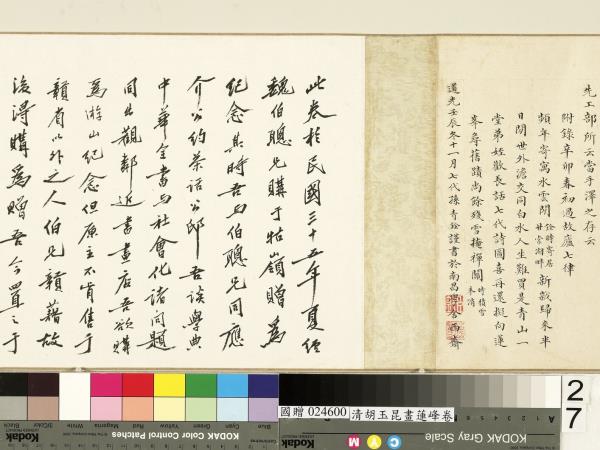 先工部所云當手澤之存云
附錄辛卯春初過故廬七律
頻年寄寓水雲開
新歲歸來半
日閒世外澹交同白水人生難買是青山一
堂弟姪歡長話七代詩圖喜再還擬向蓮
峯尋舊蹟尚餘殘雪掩禪關
時積雪
未消
道光壬辰冬十一月七代孫青銓謹書於南昌
西齋
此卷於民國三十五年夏經
魏伯聰兄購于牯嶺贈為
紀念其時吾与伯聰兄同應
介公約茶話公邸吾談學典
中華全書与社會化諸問題
同出觀鄰近書畫店吾欲購
為游山紀念但原主不肯售于
贛省以外之人伯兄贛籍故
後得購為贈吾今置之于
國贈 024600 清胡玉昆畫蓮峰卷
27
Blue
Cyan
Green
Yellow
Red
Magenta
White
3/Color
Black
KODAK Color Control Patches
Kodak
KODAK Gray Scale
C
Y
M
Kodak
A
1
2
3
4
5
6
M
8
9
10